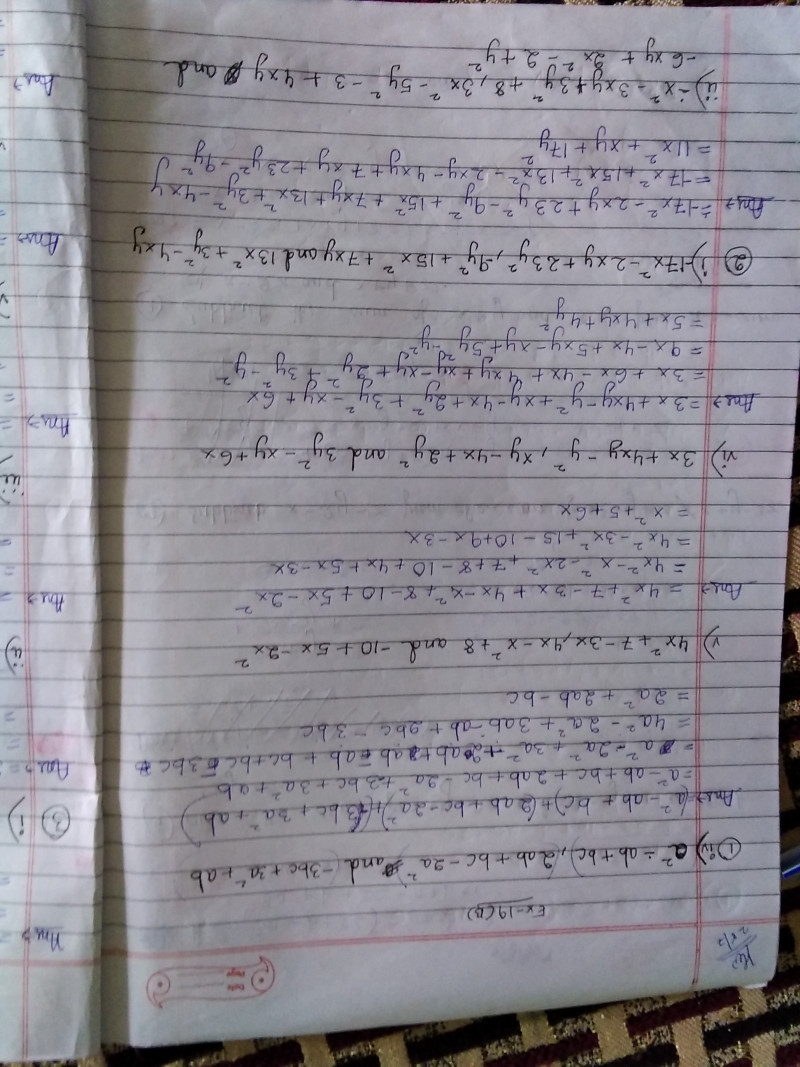 Ex-19(b)
① iv) a² - ab + bc), (2ab + bc - 2a²) and (-3bc + 3a² + ab
Ans→ (a² - ab + bc) + (2ab + bc - 2a²) + (-3bc + 3a² + ab)
= a² - ab + bc + 2ab + bc - 2a² + -3bc + 3a² + ab
= a² - 2a² + 3a² + 2ab + ab - ab + bc + bc - 3bc
= 4a² - 2a² + 3ab - ab + 2bc - 3bc
= 2a² + 2ab - bc
v) 4x² + 7 - 3x, 4x - x² + 8 and -10 + 5x - 2x²
Ans→ = 4x² + 7 - 3x + 4x - x² + 8 - 10 + 5x - 2x²
= 4x² - x² - 2x² + 7 + 8 - 10 + 4x + 5x - 3x
= 4x² - 3x² + 15 - 10 + 9x - 3x
= x² + 5 + 6x
vi) 3x + 4xy - y², xy - 4x + 2y² and 3y² - xy + 6x
Ans→ = 3x + 4xy - y² + xy - 4x + 2y² + 3y² - xy + 6x
= 3x + 6x - 4x + 4xy + xy - xy + 2y² + 3y² - y²
= 9x - 4x + 5xy - xy + 5y² - y²
= 5x + 4xy + 4y²
② i) -17x² - 2xy + 23y², -9y² + 15x² + 7xy and 13x² + 3y² - 4xy
Ans→ = -17x² - 2xy + 23y² - 9y² + 15x² + 7xy + 13x² + 3y² - 4xy
= -17x² + 15x² + 13x² - 2xy - 4xy + 7xy + 23y² - 9y²
= 11x² + xy + 17y²
ii) -x² - 3xy + 3y² + 8, 3x² - 5y² - 3 + 4xy and
-6xy + 2x² - 2 + y²
Ans→
③ i)
Ans→
ii)
Ans→
iii)
Ans→
Ans→
Ans→